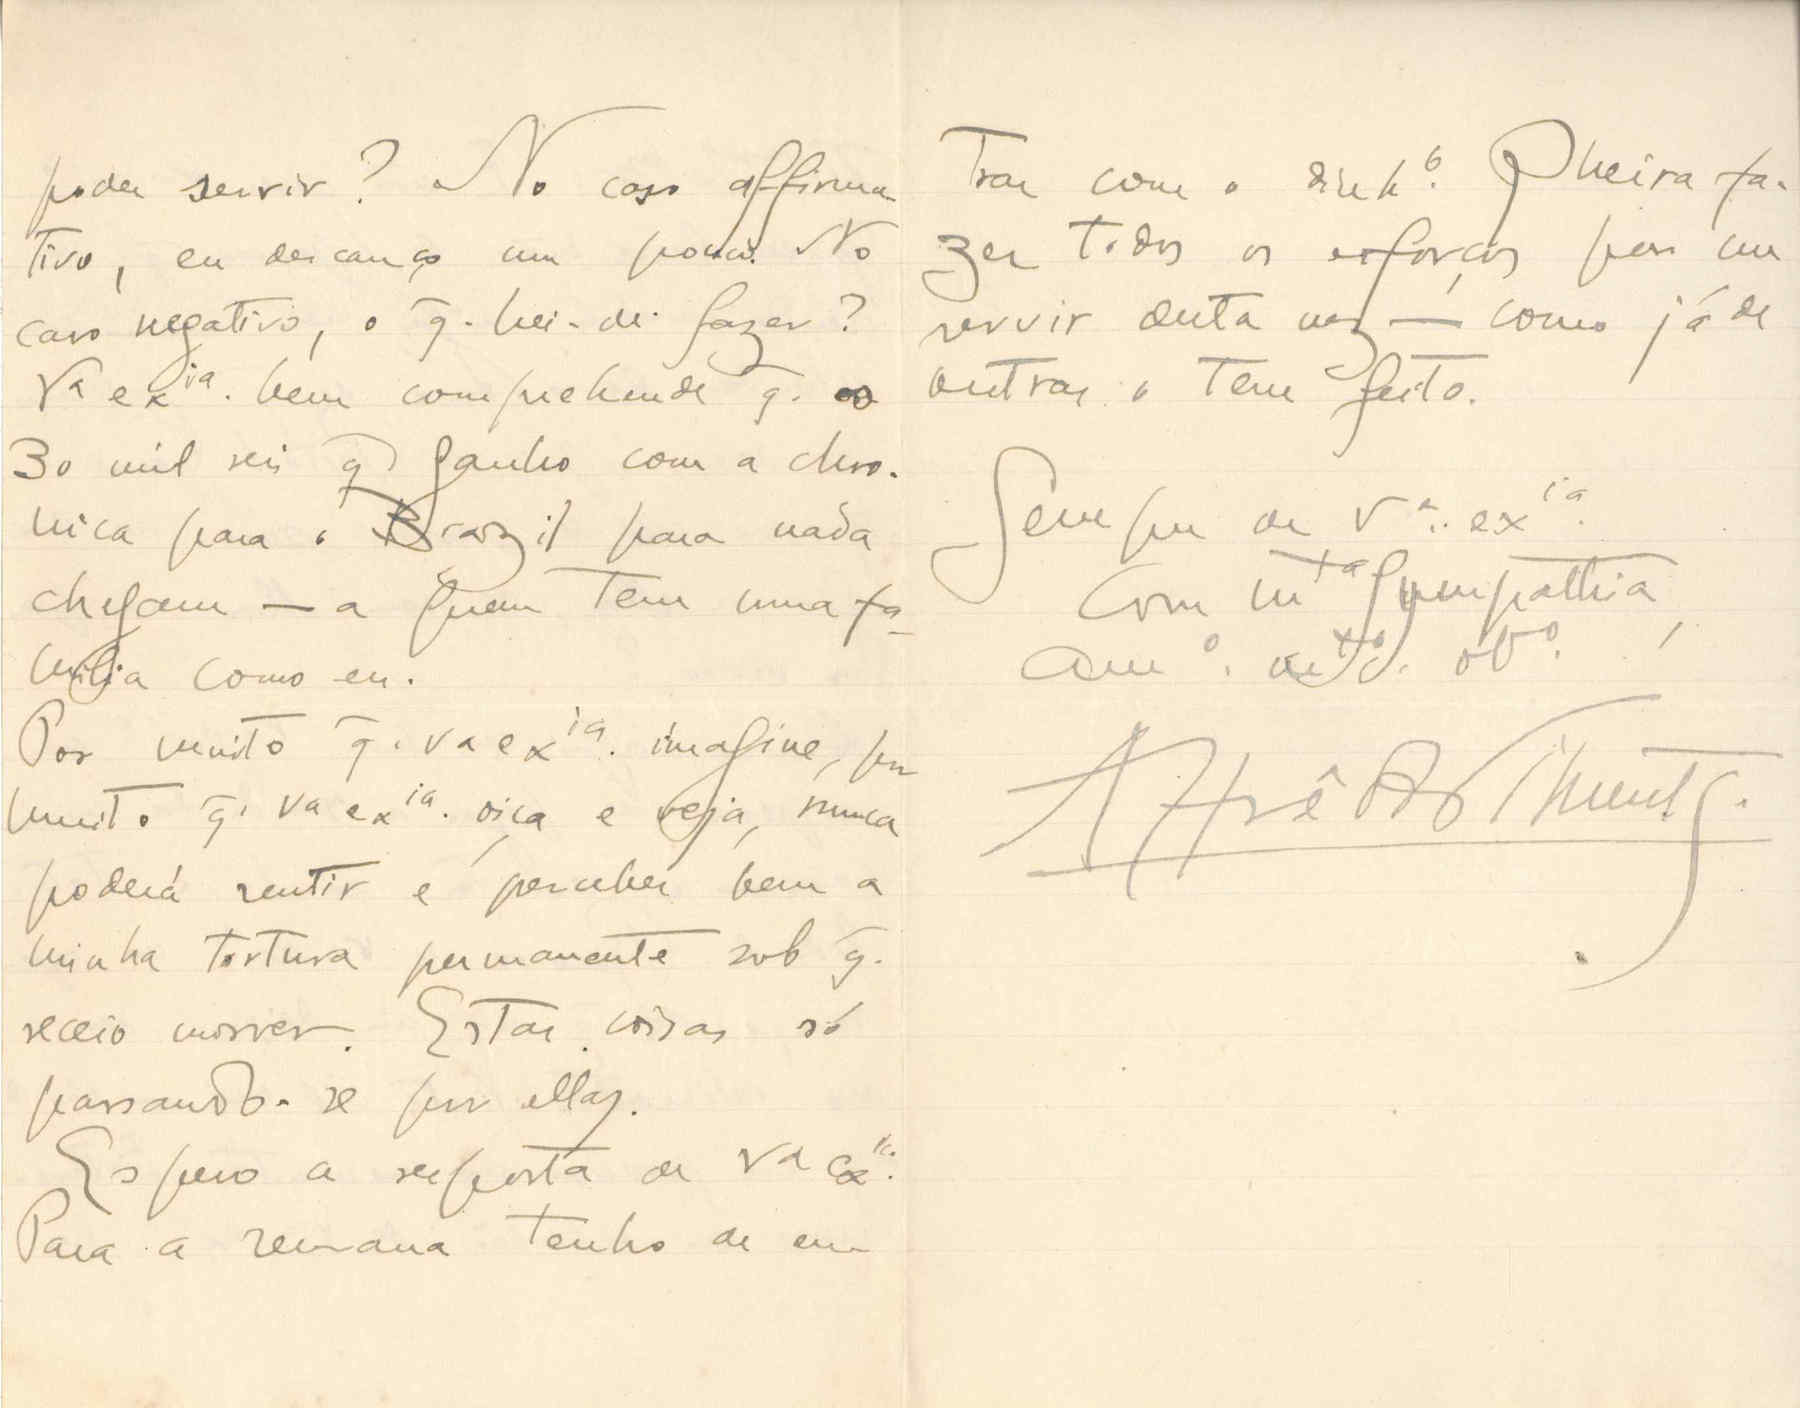 poder servir? No caso affirma-
tivo, eu descanço um pouco. No
caso negativo, o q. hei-de fazer?
Va exia. bem comprehende q. os
30 mil reis q ganho com a chro-
nica para o Brazil para nada
chegam — a quem tem uma fa-
milia como eu.
Por muito q. va exia. imagine, por
muito q. va exia. oiça e veja, nunca
poderá sentir e perceber bem a
minha tortura permanente sob q.
receio morrer. Estas coisas só
passando-se por ellas.
Espero a resposta de Va exia.
Para a semana tenho de en-
trar com o dinho. Queira fa-
zer todos os esforços por me
servir desta vez — como já de
outras o tem feito.
Sempre de Va. exia.
Com mta sympathia,
Amo. mto. obo.
Alfrêdo Pimenta.